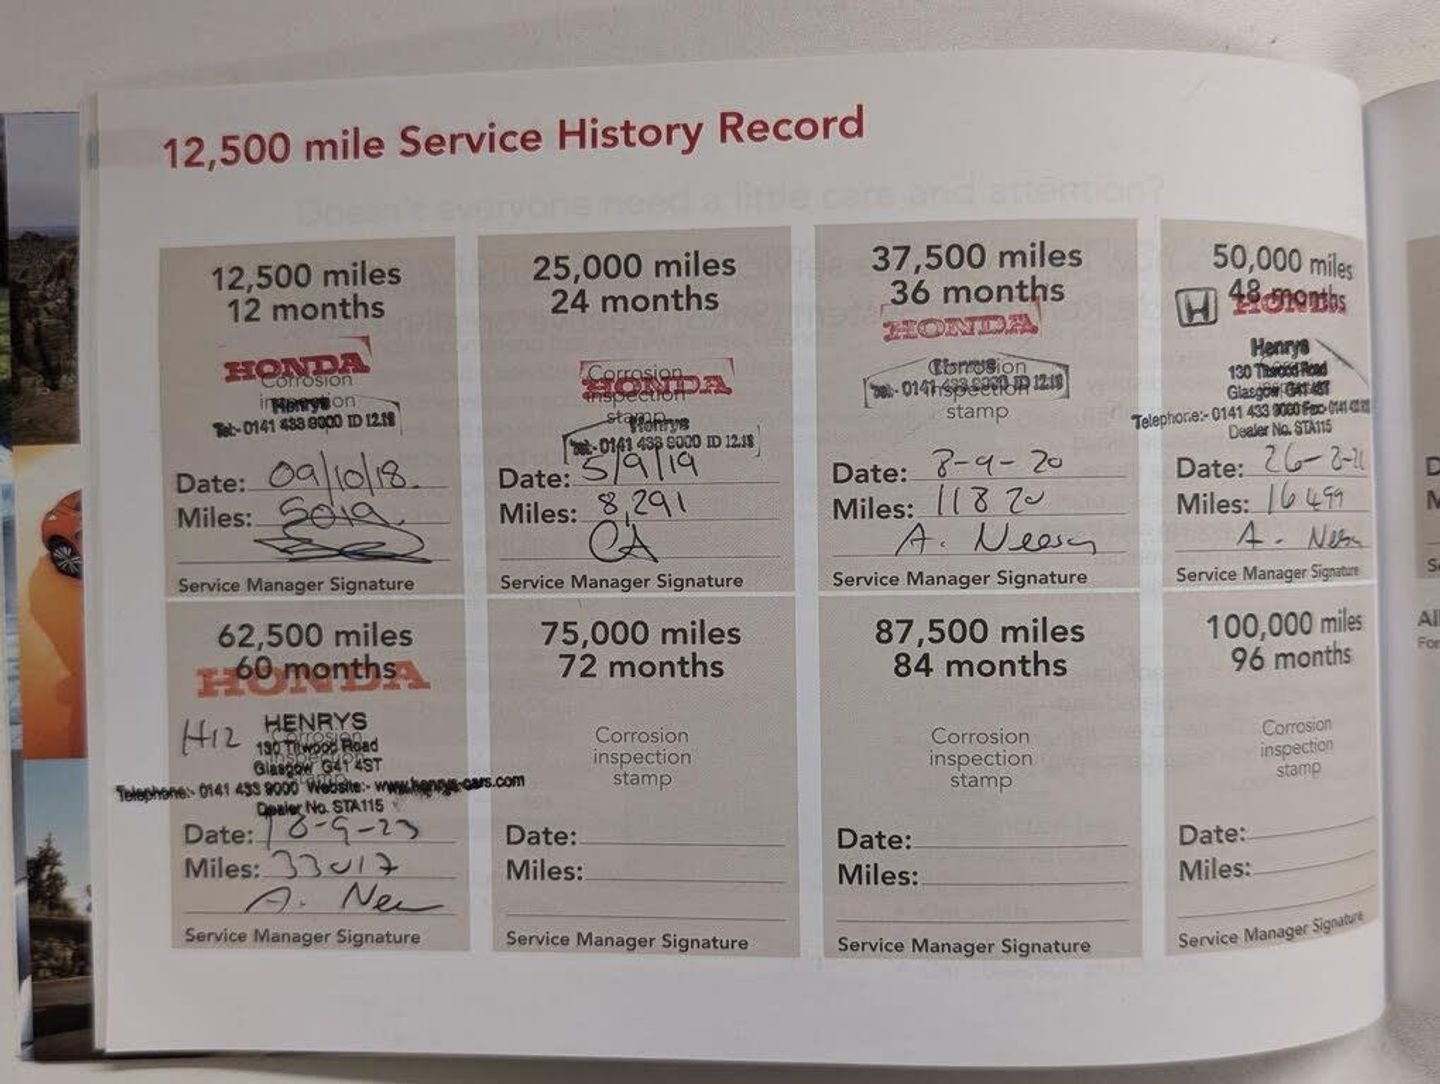 12,500 mile Service History Record
12,500 miles
12 months
HONDA
Corrosion
inspection
Henrys
Tel:- 0141 433 9000 ID 12.18
Date: 09/10/18.
Miles: 5019
Service Manager Signature
25,000 miles
24 months
Corrosion
HONDA
inspection
stamp
Henrys
Tel:- 0141 433 9000 ID 12.18
Date: 5/9/19
Miles: 8,291
CA
Service Manager Signature
37,500 miles
36 months
HONDA
Corrosion
Tel:- 0141 433 9000 ID 12.18
inspection
stamp
Date: 8-9-20
Miles: 11820
A.
Service Manager Signature
50,000 miles
48 months
HONDA
Henrys
130 Titwood Road
Glasgow G41 4ST
Telephone:- 0141 433 9000 Fax- 0141
Dealer No. STA115
Date: 26-8-21
Miles: 16499
A.
Service Manager Signature
62,500 miles
60 months
HONDA
H12
HENRYS
Corrosion
130 Titwood Road
Glasgow G41 4ST
Telephone:- 0141 433 9000 Website:- www.henrys-cars.com
Dealer No. STA115
Date: 18-9-23
Miles: 33017
A.
Service Manager Signature
75,000 miles
72 months
Corrosion
inspection
stamp
Date:
Miles:
Service Manager Signature
87,500 miles
84 months
Corrosion
inspection
stamp
Date:
Miles:
Service Manager Signature
100,000 miles
96 months
Corrosion
inspection
stamp
Date:
Miles:
Service Manager Signature